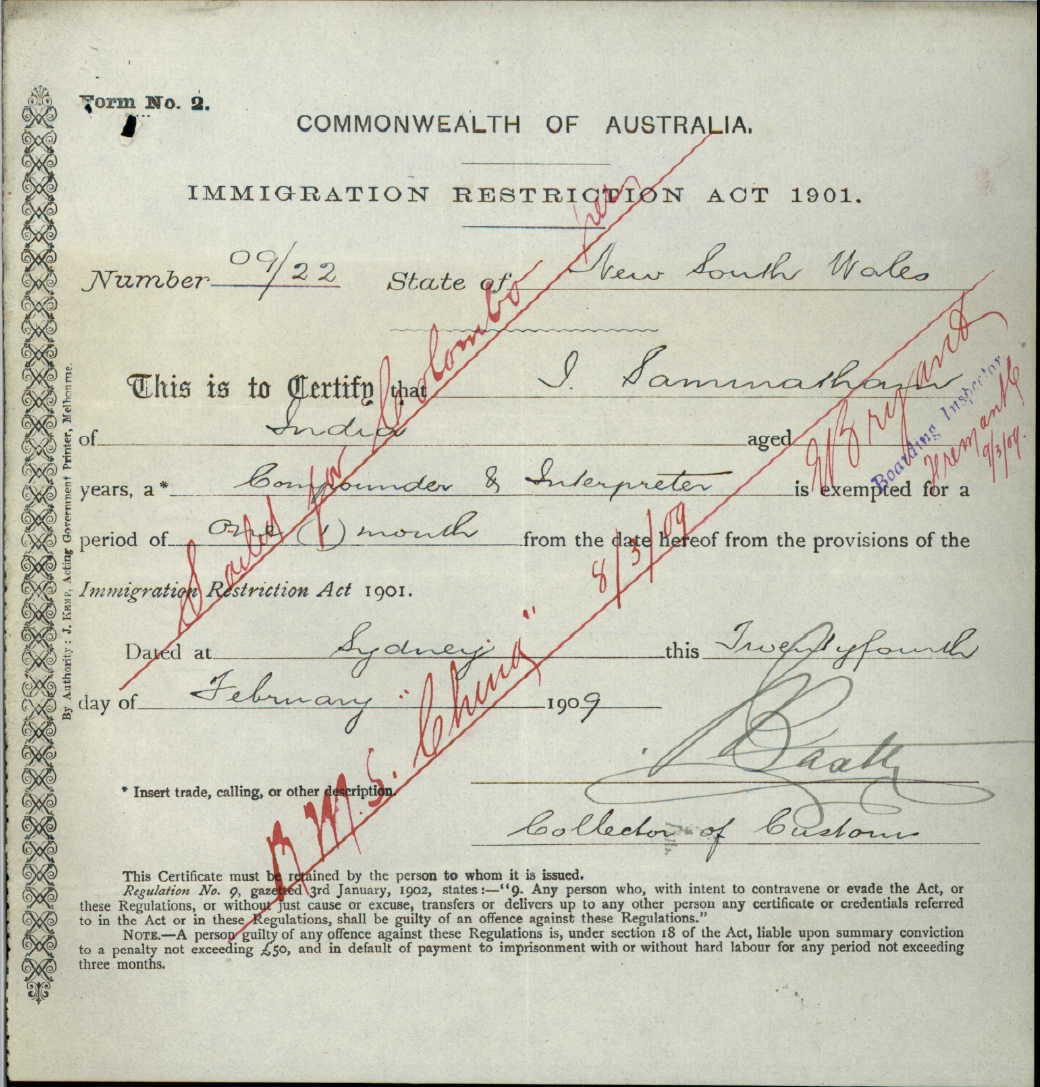 Form No. 2.
COMMONWEALTH OF AUSTRALIA.
IMMIGRATION RESTRICTION ACT 1901.
Number 09/22 State of New South Wales
This is to Certify that I. Samminathann
of India aged
years, a* Compounder & Interpreter is exempted for a
period of One (1) month from the date hereof from the provisions of the
Immigration Restriction Act 1901.
Dated at Sydney this Twentyfourth
day of February 1909
* Insert trade, calling, or other description.
Collector of Customs
This Certificate must be retained by the person to whom it is issued.
Regulation No. 9, gazetted 3rd January, 1902, states:—"9. Any person who, with intent to contravene or evade the Act, or
these Regulations, or without just cause or excuse, transfers or delivers up to any other person any certificate or credentials referred
to in the Act or in these Regulations, shall be guilty of an offence against these Regulations."
NOTE.—A person guilty of any offence against these Regulations is, under section 18 of the Act, liable upon summary conviction
to a penalty not exceeding £50, and in default of payment to imprisonment with or without hard labour for any period not exceeding
three months.
By Authority: J. KEMP, Acting Government Printer, Melbourne.
Sailed for Colombo per
R.M.S. "China" 8/3/09
Bryant
Boarding Inspector
Fremantle
9/3/09.